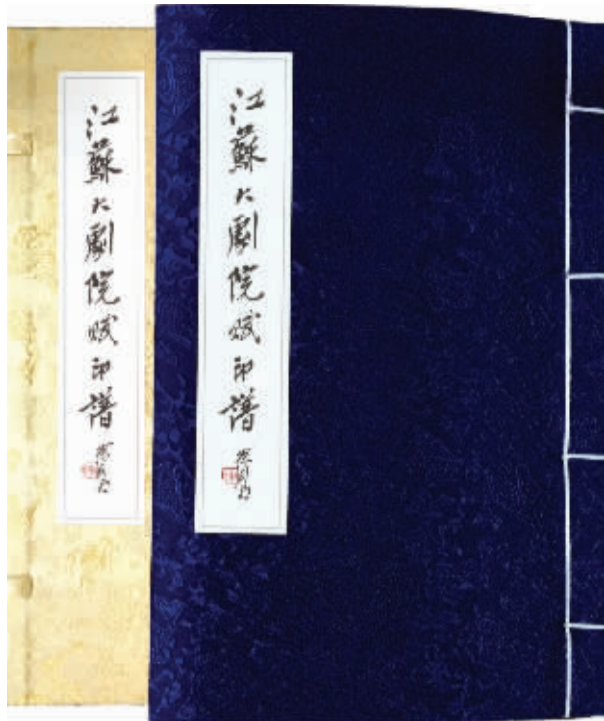 江蘇大劇院賦印譜
江蘇大劇院賦印譜